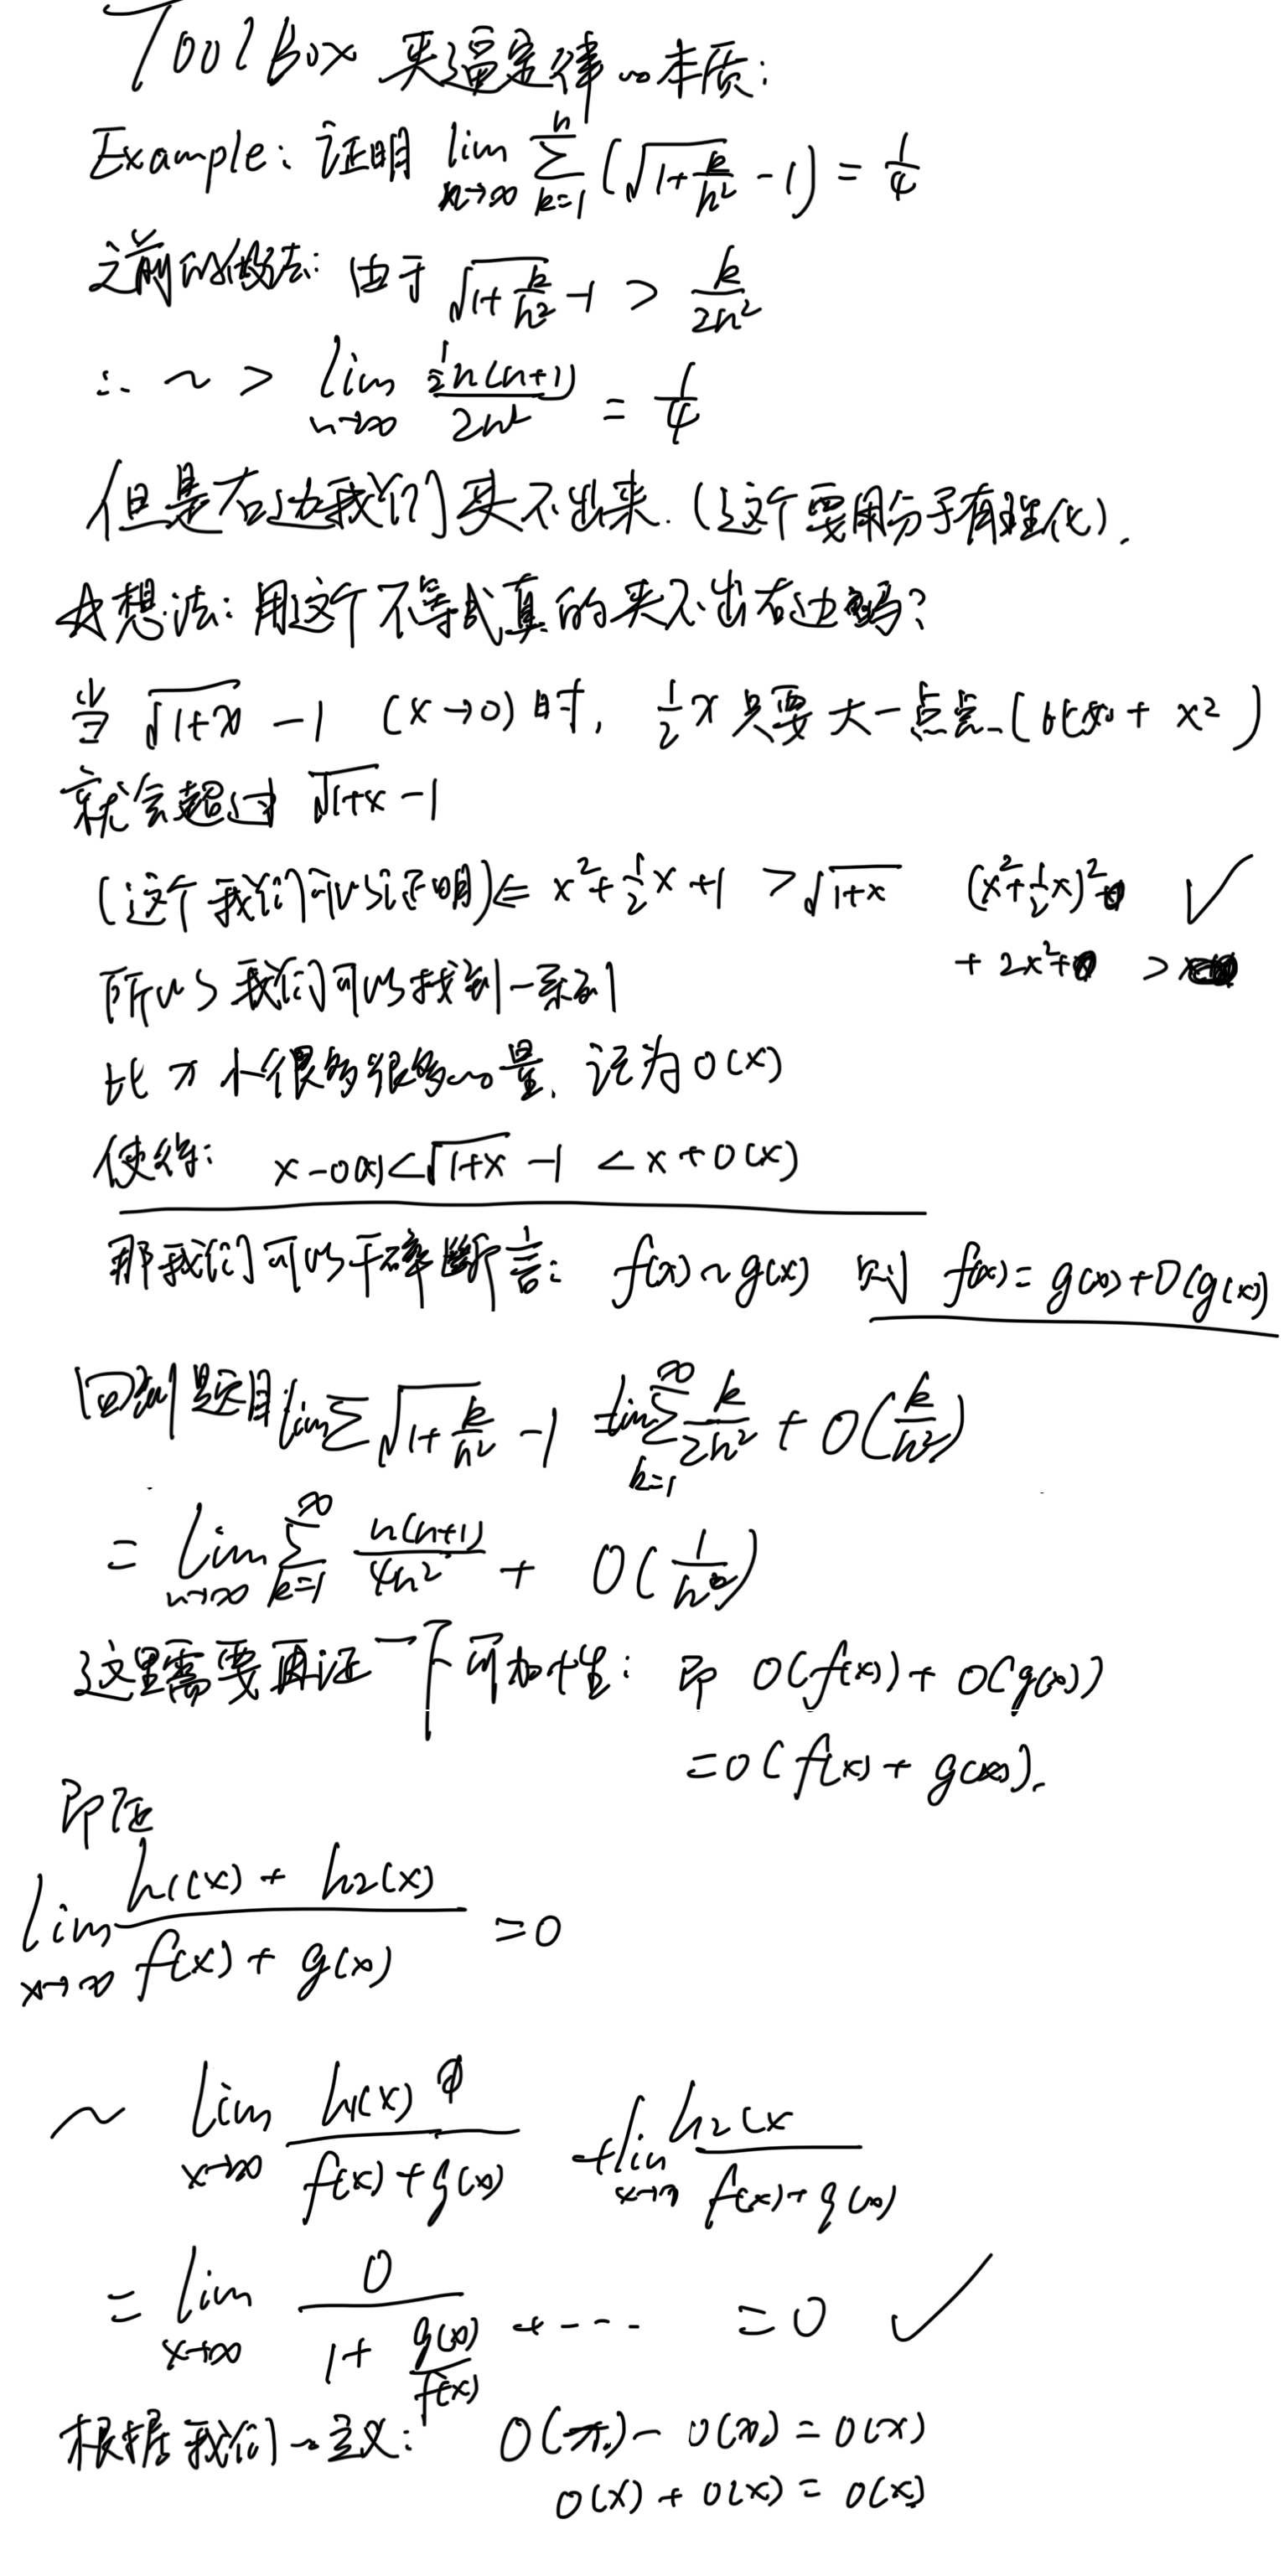 ToolBox 夹逼定律的本质:
Example: 证明 lim_{n→∞} ∑_{k=1}^{n} (√(1+k/n²) -1) = 1/4
之前的做法: 由于 √(1+k/n²) -1 > k/2n²
∴ ~ > lim_{n→∞} (½n(n+1))/2n² = 1/4
但是右边我们夹不出来. (这个要用分子有理化).
☆想法: 用这个不等式真的夹不出右边吗?
当 √(1+x) -1 (x→0) 时, ½x 只要大一点点 (比如 + x²)
就会超过 √(1+x) -1
(这个我们可以证明) ⇐ x²+½x+1 > √(1+x) (x²+½x)² ✓
+ 2x²+0 >
所以我们可以找到一系列
比 x 小很多很多的量, 记为 o(x)
使得: x-o(x) < √(1+x) -1 < x+o(x)
那我们可以干碎断言: f(x)~g(x) 则 f(x)=g(x)+o(g(x))
回到题目 lim∑ √(1+k/n²) -1 = lim∑_{k=1}^{∞} k/2n² + o(k/n²)
= lim_{n→∞} ∑_{k=1}^{∞} n(n+1)/4n² + o(1/n²)
这里需要再证一下可加性: 即 o(f(x))+o(g(x))
=o(f(x)+g(x)).
即证
lim_{x→∞} (h1(x)+h2(x))/(f(x)+g(x)) =0
~ lim_{x→∞} h1(x)/(f(x)+g(x)) +lim_{x→∞} h2(x/(f(x)+g(x))
= lim_{x→∞} 0/(1+g(x)/f(x)) +---- =0 ✓
根据我们的定义: o(x)-o(x)=o(x)
o(x)+o(x)=o(x)